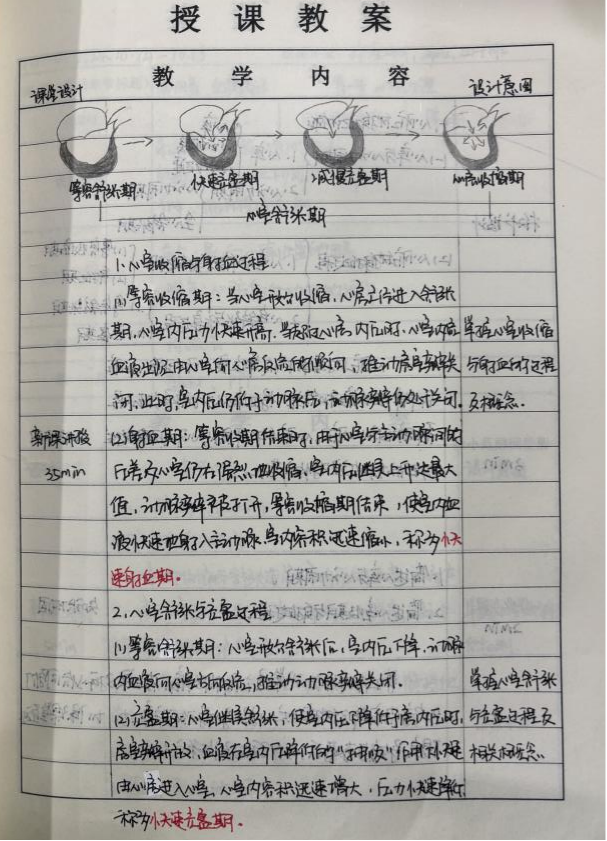 授课教案
课堂设计 教学内容 设计意图
等容舒张期 快速充盈期 减慢充盈期 心房收缩期
心室舒张期
1.心室收缩与射血过程
(1)等容收缩期：当心室开始收缩，心房立马进入舒张
期，心室内压力快速升高，当超过心房内压时，心室内
血液出现由心室向心房反向的倾向，推动房室瓣关
闭，此时，室内压仍低于动脉压，动脉瓣仍处关闭。
掌握心室收缩
与射血的过程
及概念。
新课讲授
35min
(2)射血期：等容收缩期结束时，由于心室与主动脉间的
压差，心室仍在强烈地收缩，室内压继续上升达最大
值，动脉瓣被打开，等容收缩期结束，使室内血
液快速地射入主动脉，室内容积迅速缩小，称为快
速射血期。
2.心室舒张与充盈过程
(1)等容舒张期：心室开始舒张后，室内压下降，动脉
内血液向心室方向，推动动脉瓣关闭。
(2)充盈期：心室继续舒张，使室内压下降低于房内压时，
房室瓣开放，血液在室内压降低的“抽吸”作用下快速
由心房进入心室，心室内容积迅速增大，压力快速降低
称为快速充盈期。
掌握心室舒张
与充盈过程及
相关概念。